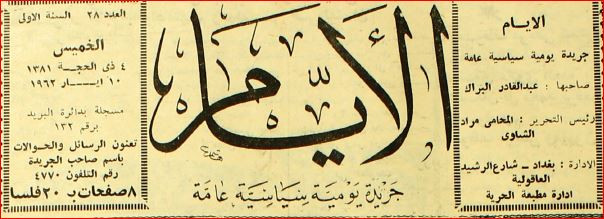 الايام
جريدة يومية سياسية عامة
صاحبها : عبدالقادر البراك
رئيس التحرير : المحامي مراد
الشاوي
الادارة : بغداد - شارع الرشيد
العاقولية
ادارة مطبعة الحرية
الأيام
جريدة يومية سياسية عامة
العدد ٢٨ السنة الاولى
الخميس
٤ ذي الحجة ١٣٨١
١٠ ايـــار ١٩٦٢
مسجلة بدائرة البريد
برقم ١٣٢
تعنون الرسائل والحوالات
باسم صاحب الجريدة
رقم التلفون ٤٧٧٠
٨ صفحات بـ ٢٠ فلسا